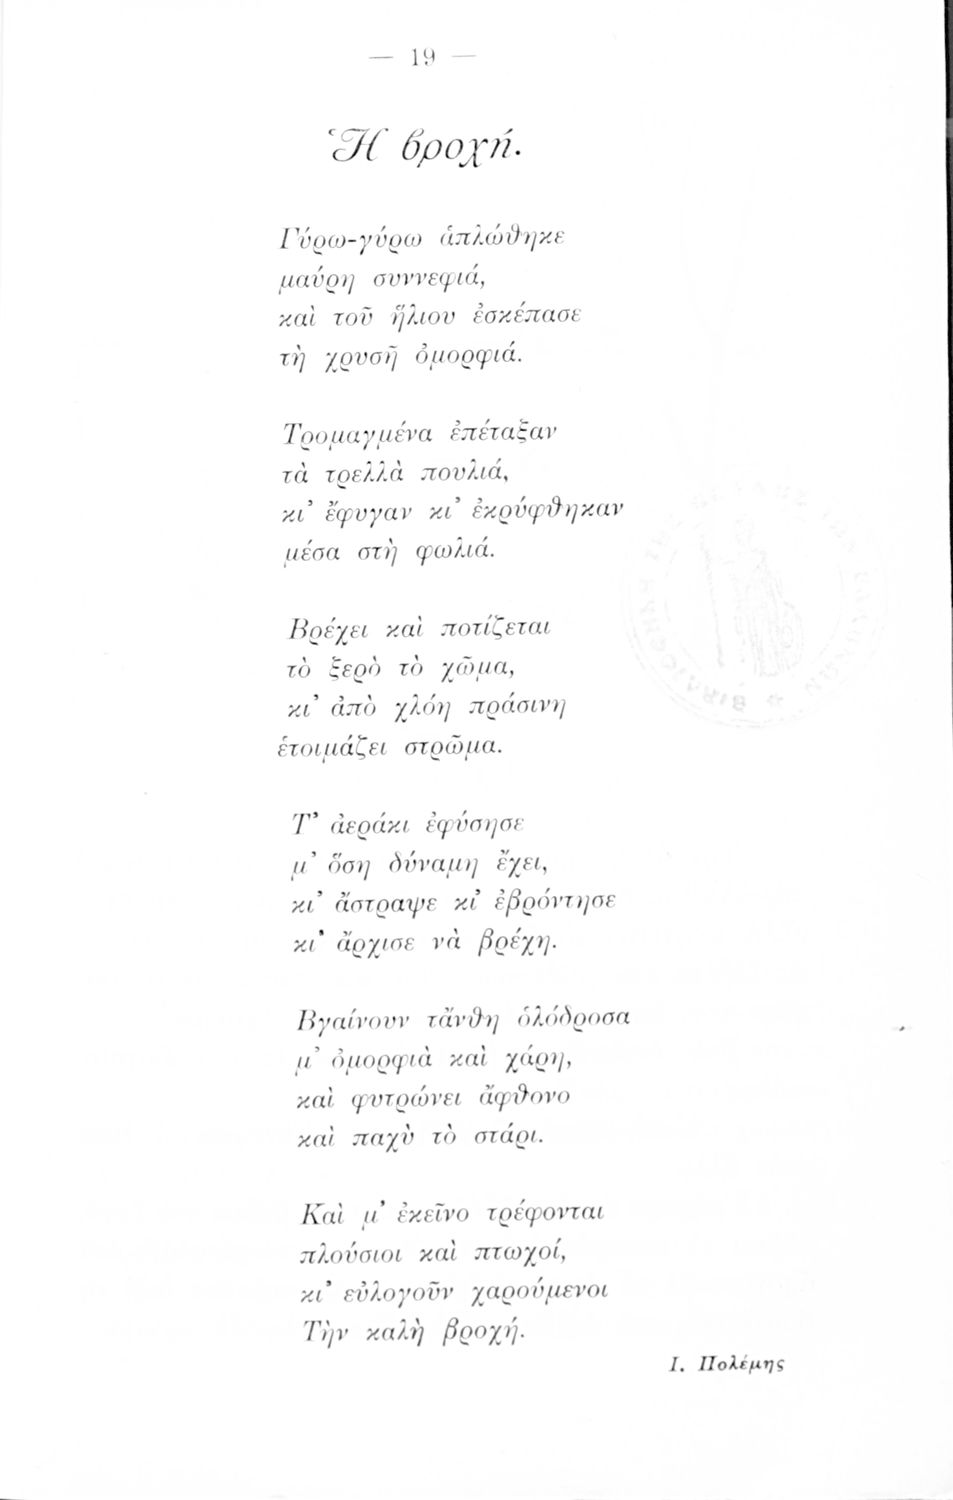 — 19 —
Ἡ βροχή.
Γύρω-γύρω ἁπλώθηκε
μαύρη συννεφιά,
καὶ τοῦ ἥλιου ἐσκέπασε
τὴ χρυσῆ ὀμορφιά.
Τρομαγμένα ἐπέταξαν
τὰ τρελλὰ πουλιά,
κι’ ἔφυγαν κι’ ἐκρύφθηκαν
μέσα στὴ φωλιά.
Βρέχει καὶ ποτίζεται
τὸ ξερὸ τὸ χῶμα,
κι’ ἀπὸ χλόη πράσινη
ἑτοιμάζει στρῶμα.
Τ’ ἀεράκι ἐφύσησε
μ’ ὅση δύναμη ἔχει,
κι’ ἄστραψε κι’ ἐβρόντησε
κι’ ἄρχισε νὰ βρέχη.
Βγαίνουν τἄνθη ὁλόδροσα
μ’ ὀμορφιὰ καὶ χάρη,
καὶ φυτρώνει ἄφθονο
καὶ παχὺ τὸ στάρι.
Καὶ μ’ ἐκεῖνο τρέφονται
πλούσιοι καὶ πτωχοί,
κι’ εὐλογοῦν χαρούμενοι
Τὴν καλὴ βροχή.
Ι. Πολέμης